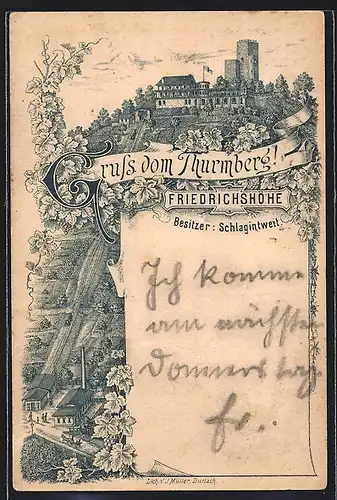 Gruss vom Thurmberg!
FRIEDRICHSHÖHE
Besitzer: Schlagintweit.
Ich komme
am nächsten
Donnerstag
Fr.
Lith. v. J. Müller, Durlach.